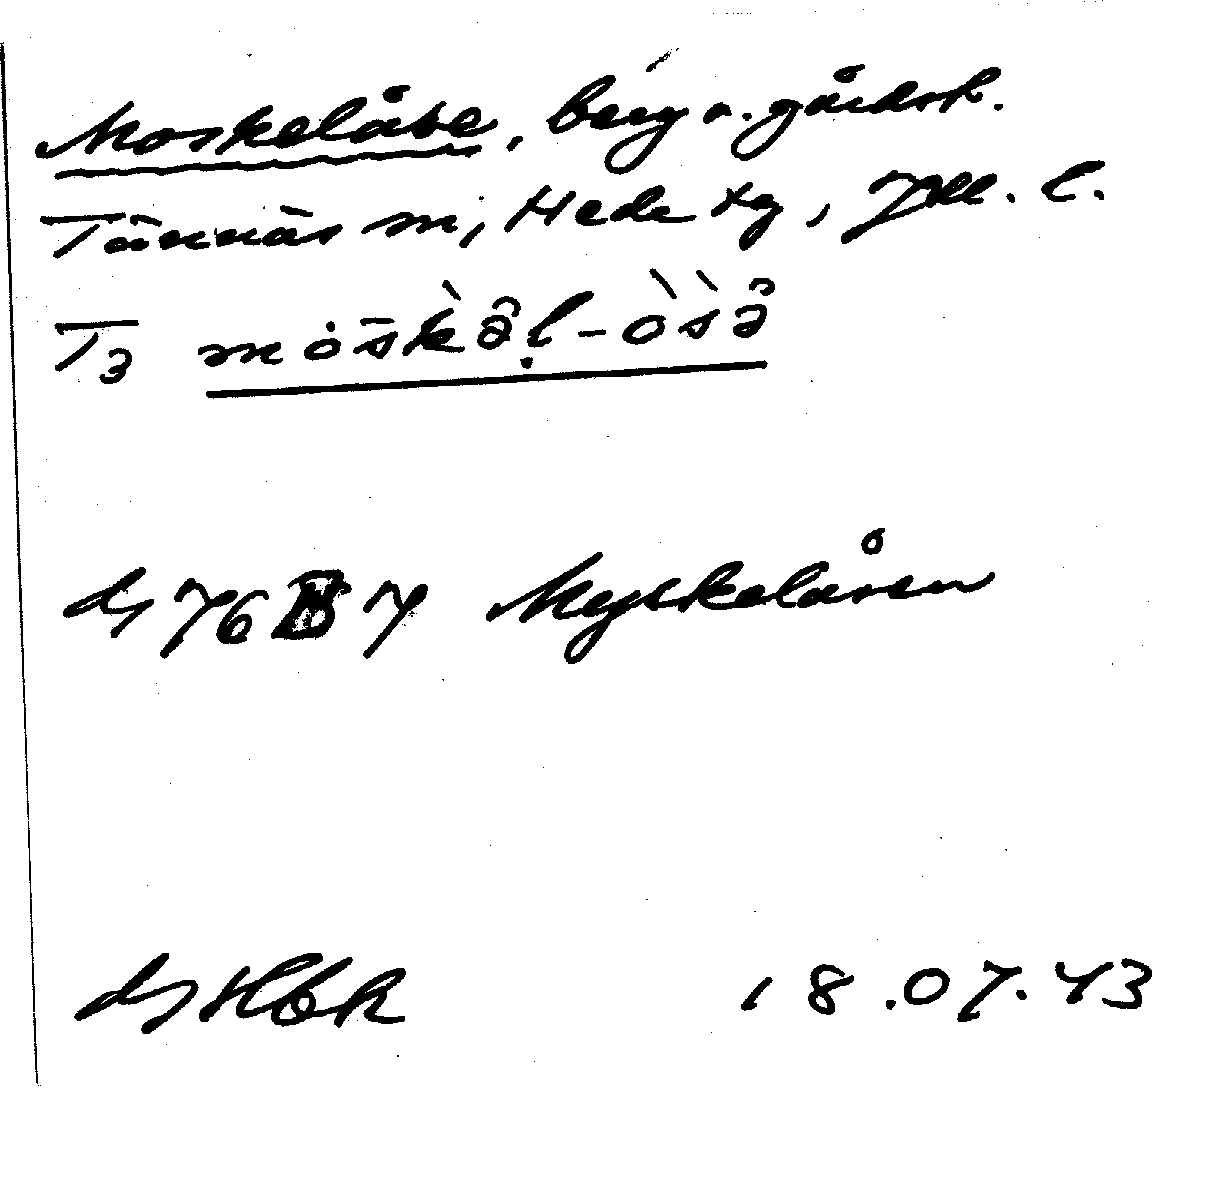 Moskelåse, berg o. gårdsk.
Tännäs sn, Hede tg, Jtl. l.
T3 möskêl-òsə̂
76 7 Myskelåsen
18.07.43